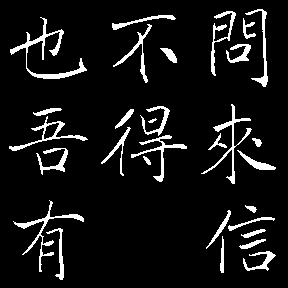 問來信
不得
也吾有